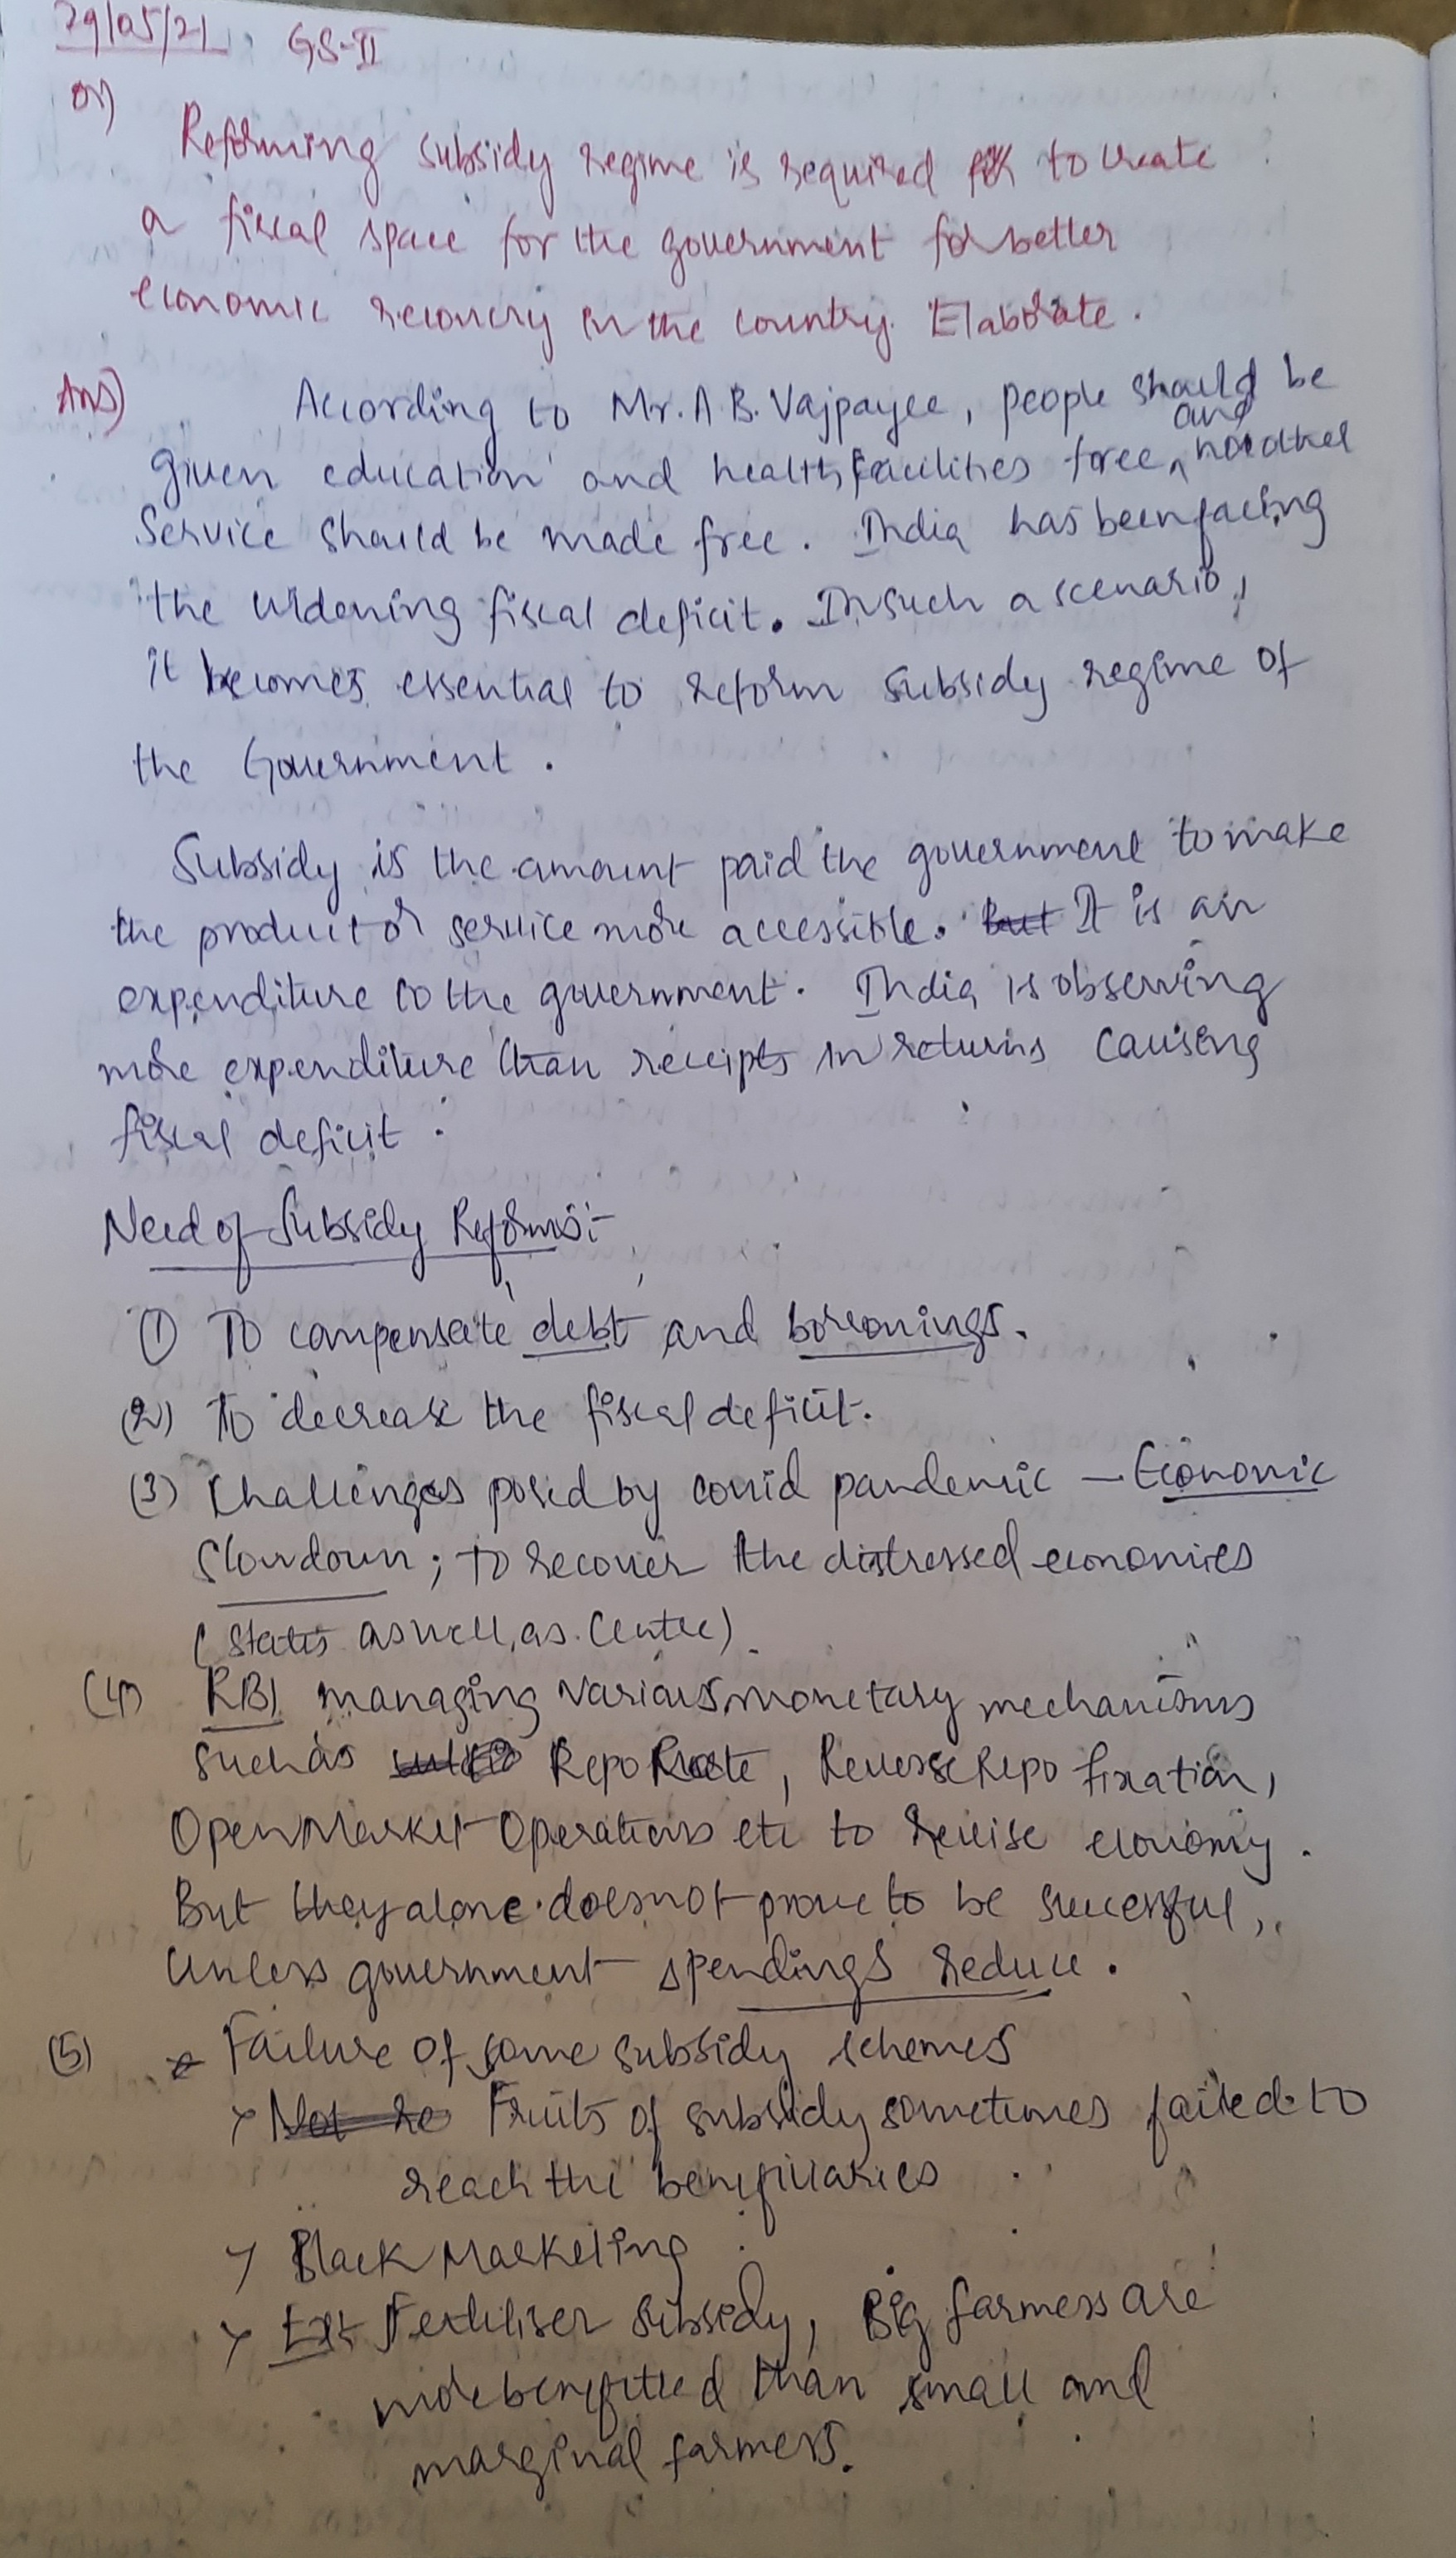 29/05/21. GS-II
Q1)
Reforming subsidy regime is required to create
a fiscal space for the government for better
economic recovery in the country. Elaborate.
Ans) According to Mr. A B. Vajpayee, people should be
given education and health facilities free, and no other
Service should be made free. India has been facing
the widening fiscal deficit. In such a scenario,
it becomes essential to reform subsidy regime of
the Government.
Subsidy is the amount paid the government to make
the product or service more accessible. But It is an
expenditure to the government. India is observing
more expenditure than receipts in returns causing
fiscal deficit.
Need of Subsidy Reforms:-
(1) To compensate debt and borrowings.
(2) To decrease the fiscal deficit.
(3) Challenges posed by covid pandemic – Economic
Slowdown; to recover the distressed economies
(States as well as Center).
(4) RBI managing various monetary mechanisms
such as Repo Rate, Reverse Repo fixation,
Open Market Operations etc to revise economy.
But they alone does not prove to be successful,
unless government spendings reduce.
(5) Failure of some subsidy schemes
> Not re Fruits of subsidy sometimes failed to
reach the beneficiaries
> Black Marketing
> Ex: Fertiliser Subsidy, Big farmers are
more benefitted than small and
marginal farmers.